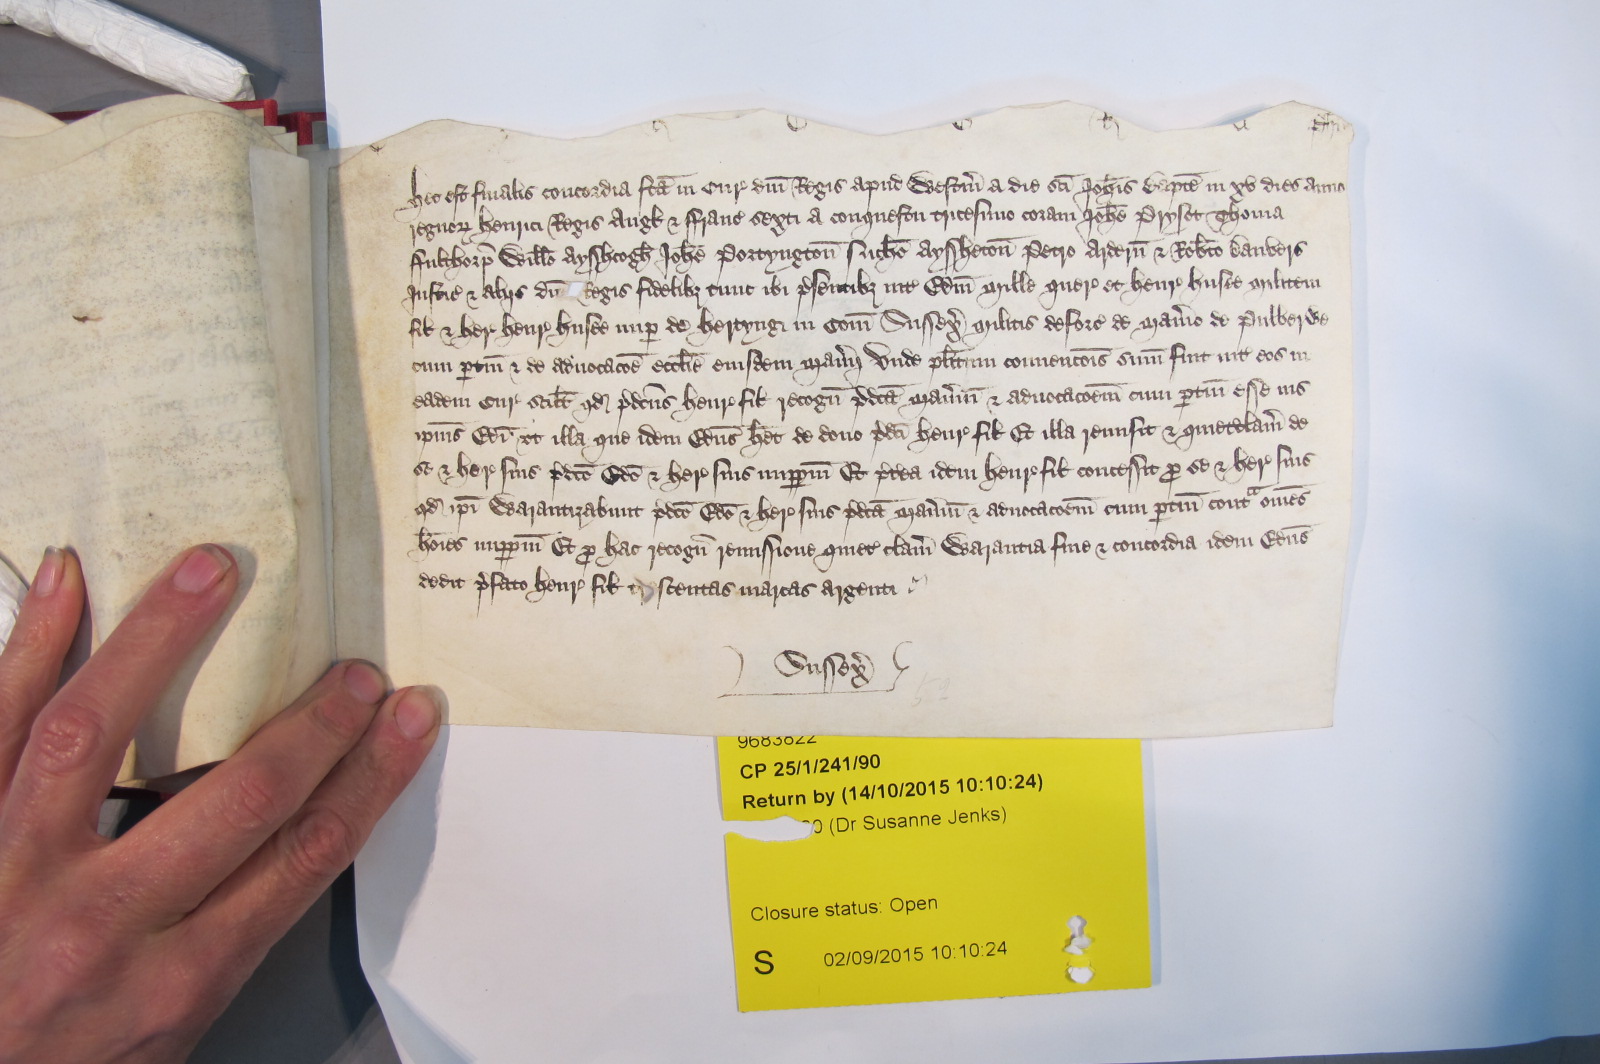 Hec est finalis concordia fcā in Cur dn̄i Regis apud Westm̄ a die Sc̄i Joh̄is Bapt̄e in xv dies anno
regnoꝝ Henrici Regis Angl̄ & Franc̄ sexti a conquestu tricesimo coram Joh̄e Prysot Thoma
Fulthorp̄ Will̄o Ayssh̄cogh̄ Joh̄e Portyngton̄ Nich̄o Ayssheton̄ Petro Ardern̄ & Rob̄to Danvers
Justic̄ & aliis dn̄i Regis fidelibꝫ tunc ibi p̄sentibꝫ int̄ Edm̄ Mille quer̄ et Henr̄ Husee militem
fil̄ & her̄ Henr̄ Husee nup̄ de Hertyng in Com̄ Sussex̄ militis deforc̄ de Man̄io de Pulberwe
cum p̄tin̄ & de advocacōe eccl̄ie eiusdem Man̄ij Unde pl̄itum convencōis sum̄ fuit int̄ eos in
eadem Cur̄ Scil̄t qd̄ p̄dc̄us Henr̄ fil̄ recogn̄ p̄dc̄a Man̄ium & advocacōem cum p̄tin̄ esse ius
ip̄ius Edī ut illa que idem Edūs h̄et de dono p̄dc̄i Henr̄ fil̄ Et illa remisit & quietclam̄ de
se & her̄ suis p̄dc̄o Edō & her̄ suis imp̄p̄m̄ Et p̄t̄ea idem Henr̄ fil̄ concessit ꝓ se & her̄ suis
qd̄ ip̄i Warantizabunt p̄dc̄o Edō & her̄ suis p̄dc̄a Man̄ium & advocacōem cum p̄tin̄ cont̄ᵃ om̄es
hōies imp̄p̄m̄ Et ꝓ hac recogn̄ remissione quiet̄ clam̄ Warantia fine & concordia idem Edūs
dedit p̄fato Henr̄ fil̄ scentas marcas argenti
Sussex̄
52
9683822
CP 25/1/241/90
Return by (14/10/2015 10:10:24)
0 (Dr Susanne Jenks)
Closure status: Open
S 02/09/2015 10:10:24